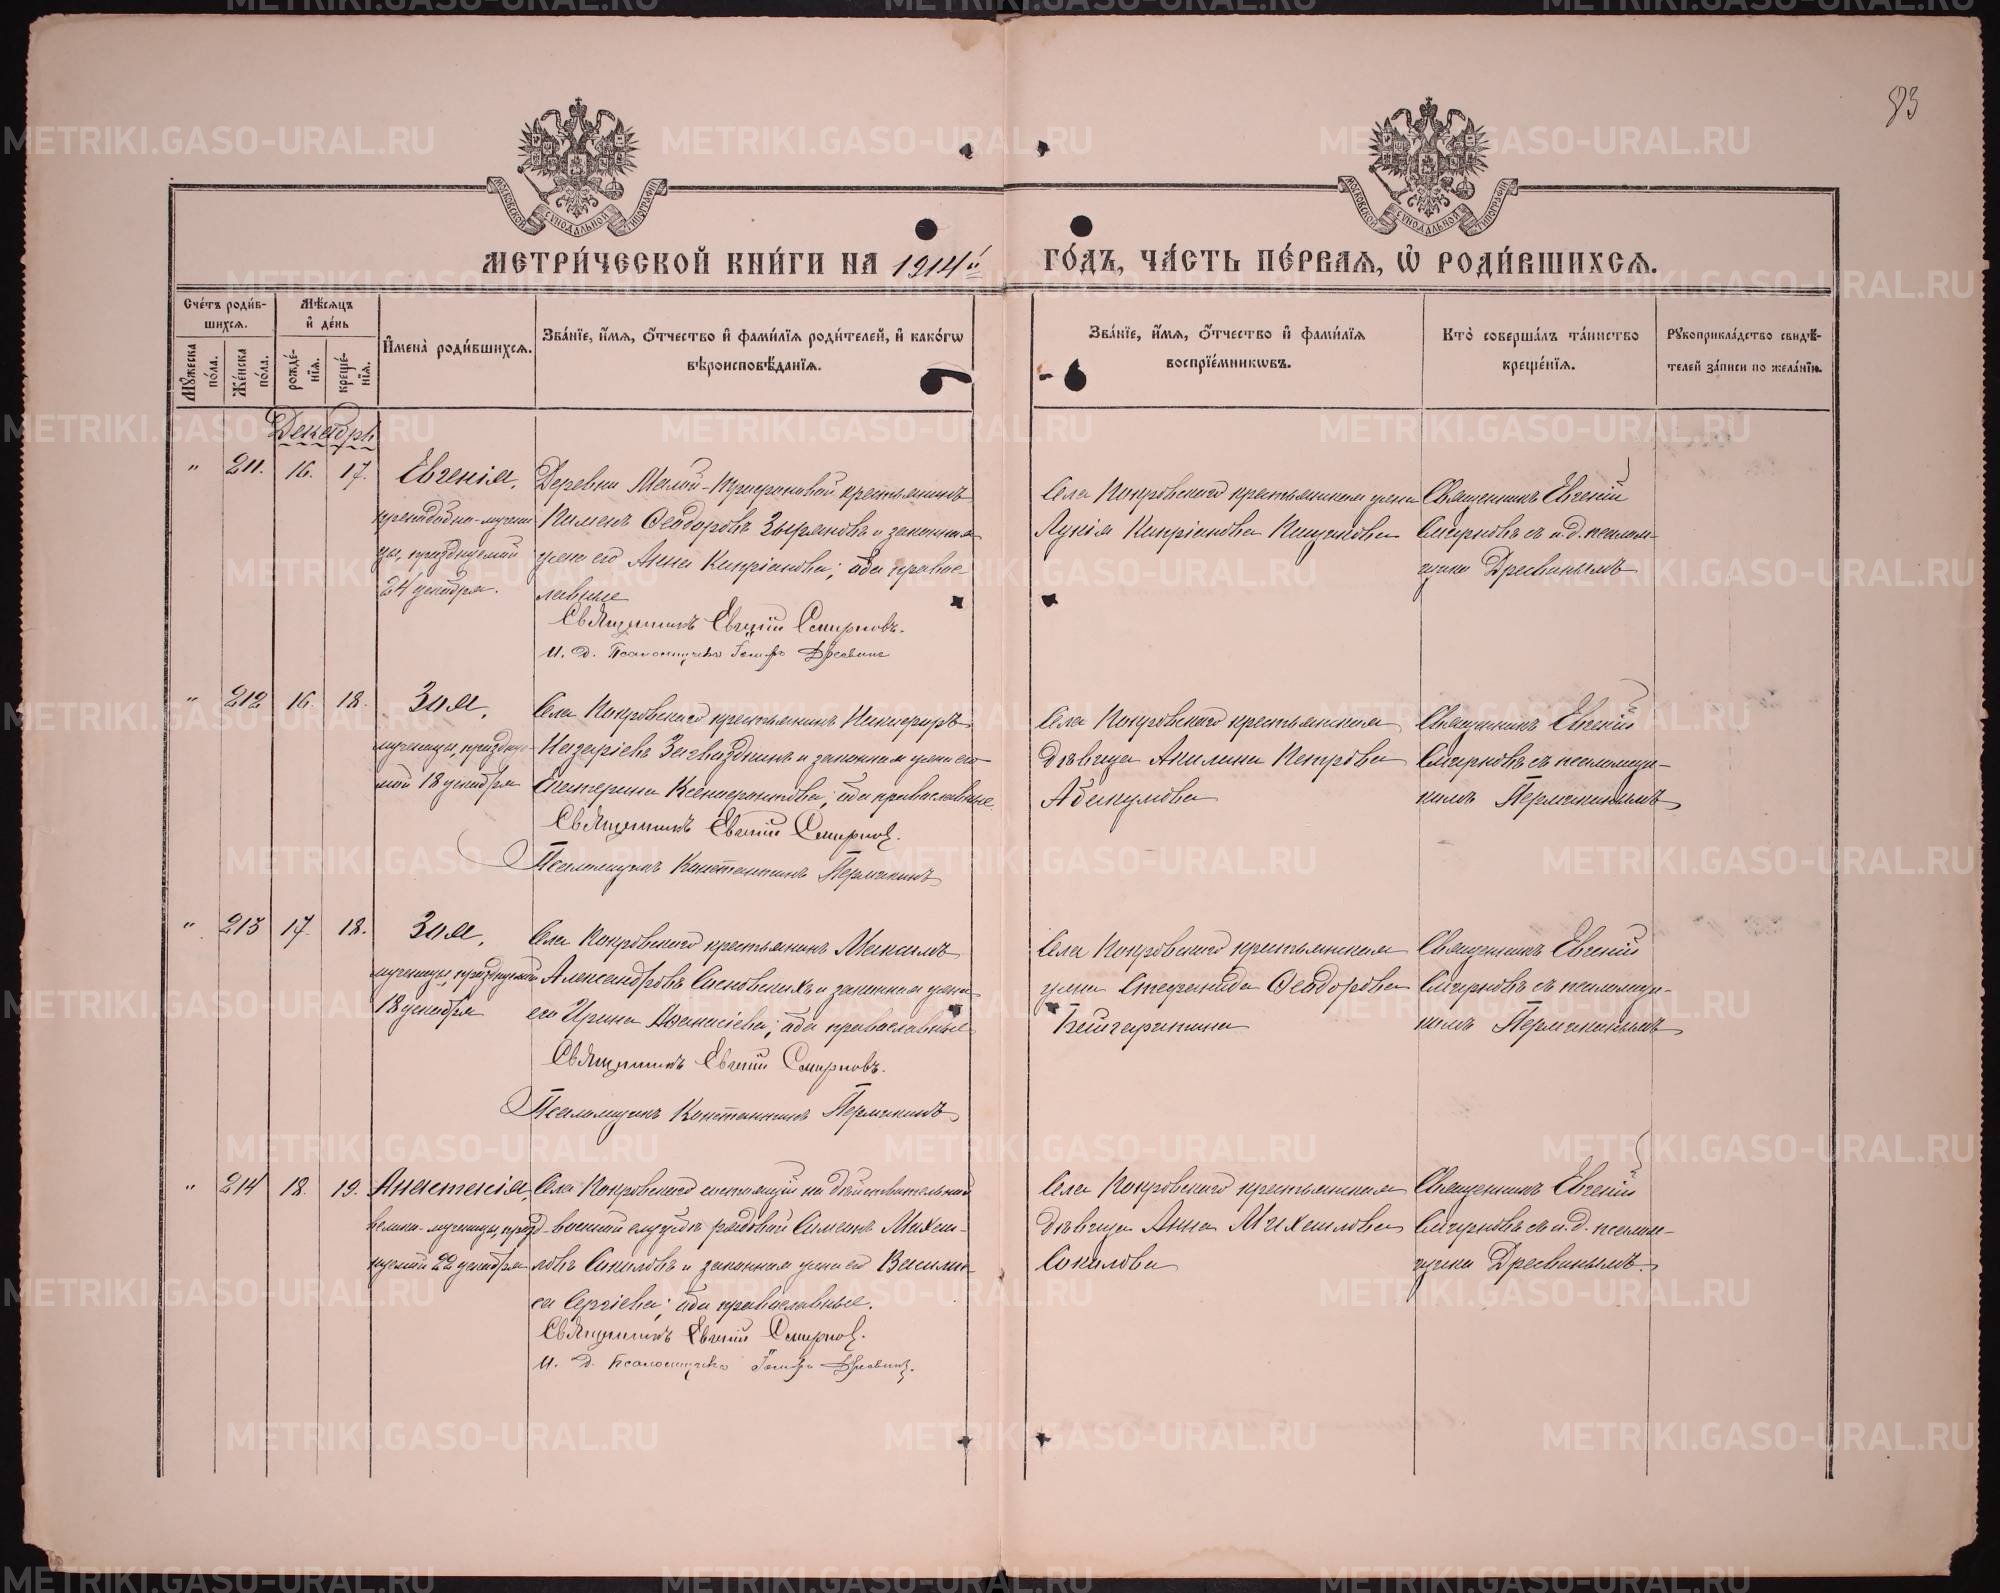 83
МЕТРИ́ЧЕСКОЙ КНИ́ГИ НА 1914й ГО́ДЪ, ЧА́СТЬ ПЕ́РВАЯ, Ѽ РОДИ́ВШИХСЯ.
МОСКОВСКОЙ СѴНОДАЛЬНОЙ ТИПОГРАФІИ
МОСКОВСКОЙ СѴНОДАЛЬНОЙ ТИПОГРАФІИ
Сче́тъ роди́в-
шихся.
Му́жеска по́ла.
Же́нска по́ла.
Мѣ́сяцъ и де́нь
рожде́-
нїя.
креще́-
нїя.
Имена̀ роди́вшихся.
Зва́нїе, и́мя, о́тчество и фами́лїя роди́телей, и како́гѡ
вѣроисповѣ́данїя.
Зва́нїе, и́мя, о́тчество и фами́лїя
воспрїе́мникѡвъ.
Кто̀ соверша́лъ та́инство
креще́нїя.
Рꙋкоприкла́дство свидѣ́-
телей за́писи по жела́нїю.
Декабрь
" 211. 16. 17. Евгенія,
преподобно-мучени-
цы, празднуемой
24 декабря.
Деревни Малой-Трифоновой крестьянинъ
Пименъ Ѳеодоровъ Зыряновъ и законная
жена его Анна Кипріанова; оба правос-
лавные
Священникъ Евгеній Смирновъ.
И. д. Псаломщика Дресвинъ
Села Покровскаго крестьянская жена
Лукія Кипріанова
Священникъ Евгеній
Смирновъ съ и.д. псалом-
щика Дресвинымъ
" 212 16. 18. Зоя,
мученицы, праздну-
мой 18 декабря
Села Покровскаго крестьянинъ Никифоръ
Назаріевъ Загвоздкинъ и законная жена его
Екатерина Ксенофонтова; оба православные
Священникъ Евгеній Смирновъ.
Псаломщикъ Константинъ Пермякинъ
Села Покровскаго крестьянская
дѣвица Акилина Петрова
Абакумова
Священникъ Евгеній
Смирновъ съ псаломщи-
комъ Пермякинымъ
" 213 17. 18. Зоя,
мученицы, празднуемой
18 декабря
Села Покровскаго крестьянинъ Максимъ
Александровъ Сосновскихъ и законная жена
его Ирина Аѳанасіева; оба православные
Священникъ Евгеній Смирновъ.
Псаломщикъ Константинъ Пермякинъ
Села Покровскаго крестьянская
жена Стефанида Ѳеодорова
Священникъ Евгеній
Смирновъ съ псаломщи-
комъ Пермякинымъ
" 214 18. 19. Анастасія,
велико-мученицы, празд-
нуемой 22 декабря
Села Покровскаго состоящій на дѣйствительной
военной службѣ рядовой Симеонъ Михаи-
ловъ Соколовъ и законная жена его Васили-
са Сергіева; оба православные.
Священникъ Евгеній Смирновъ.
И. д. Псаломщика Дресвинъ.
Села Покровскаго крестьянская
дѣвица Анна Михаилова
Соколова
Священникъ Евгеній
Смирновъ съ и.д. псалом-
щика Дресвинымъ.
METRIKI.GASO-URAL.RU